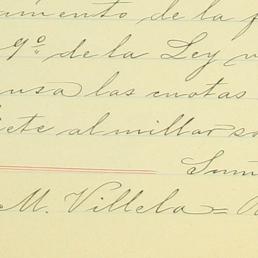 amento de la f
9º de la Ley v
usa las cuotas
iete al millar so
Sum
M. Villela =